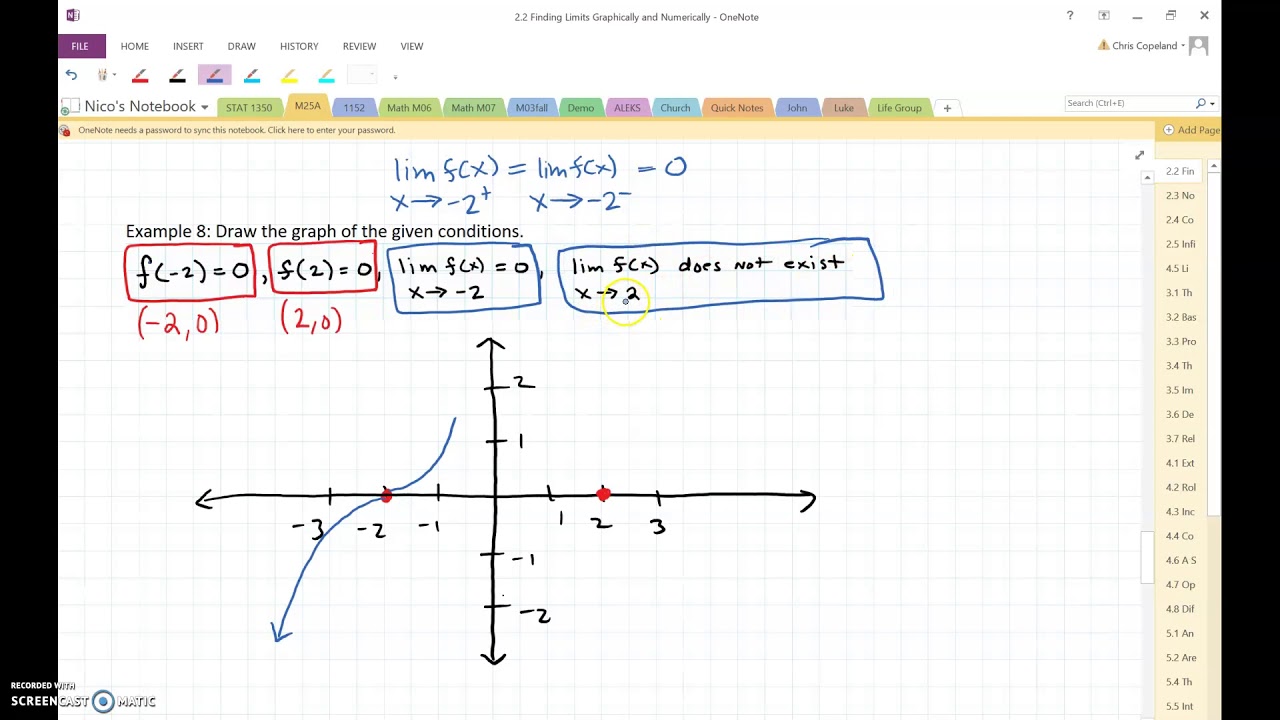 2.2 Finding Limits Graphically and Numerically - OneNote
FILE HOME INSERT DRAW HISTORY REVIEW VIEW
Chris Copeland
Nico's Notebook STAT 1350 M25A 1152 Math M06 Math M07 M03fall Demo ALEKS Church Quick Notes John Luke Life Group
Search (Ctrl+E)
OneNote needs a password to sync this notebook. Click here to enter your password.
Add Page
lim f(x) = lim f(x) = 0
x→-2⁺ x→-2⁻
Example 8: Draw the graph of the given conditions.
f(-2)=0, f(2)=0, lim f(x) = 0, lim f(x) does not exist
x→-2 x→2
(-2,0) (2,0)
2
1
-3 -2 -1 1 2 3
-1
-2
2.2 Fin
2.3 No
2.4 Co
2.5 Infi
4.5 Li
3.1 Th
3.2 Bas
3.3 Pro
3.4 Th
3.5 Im
3.6 De
3.7 Rel
4.1 Ext
4.2 Rol
4.3 Inc
4.4 Co
4.6 A S
4.7 Op
4.8 Dif
5.1 An
5.2 Are
5.4 Th
5.5 Int
RECORDED WITH
SCREENCAST MATIC